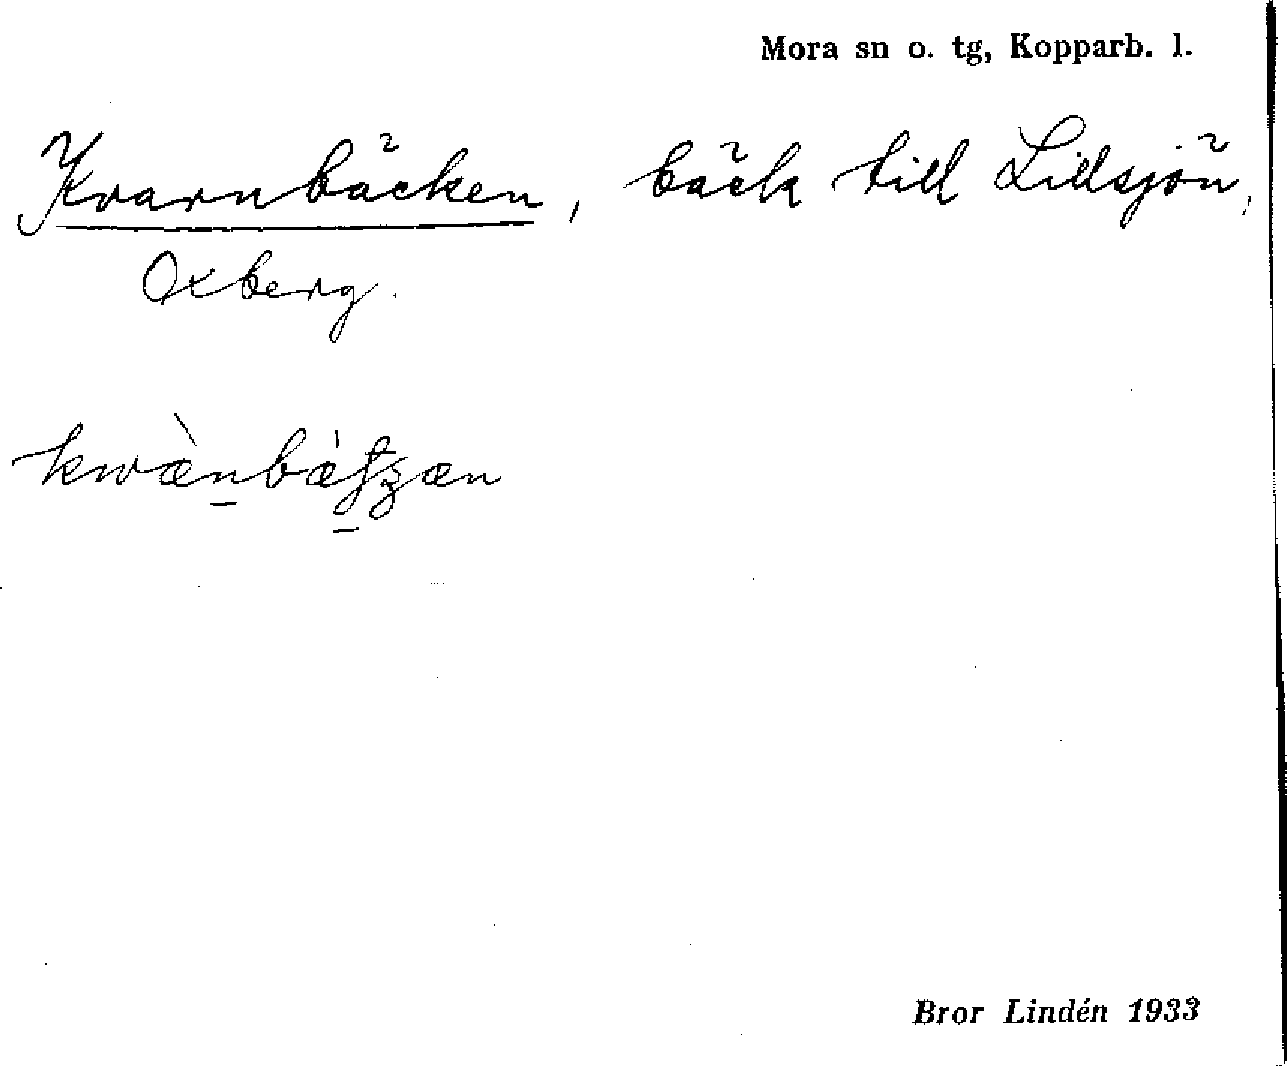 Mora sn o. tg, Kopparb. l.
Kvarnbäcken, bäck till Lillsjön,
Oxberg.
kwæ̀nbæ̀ʃʒæn
Bror Lindén 1933